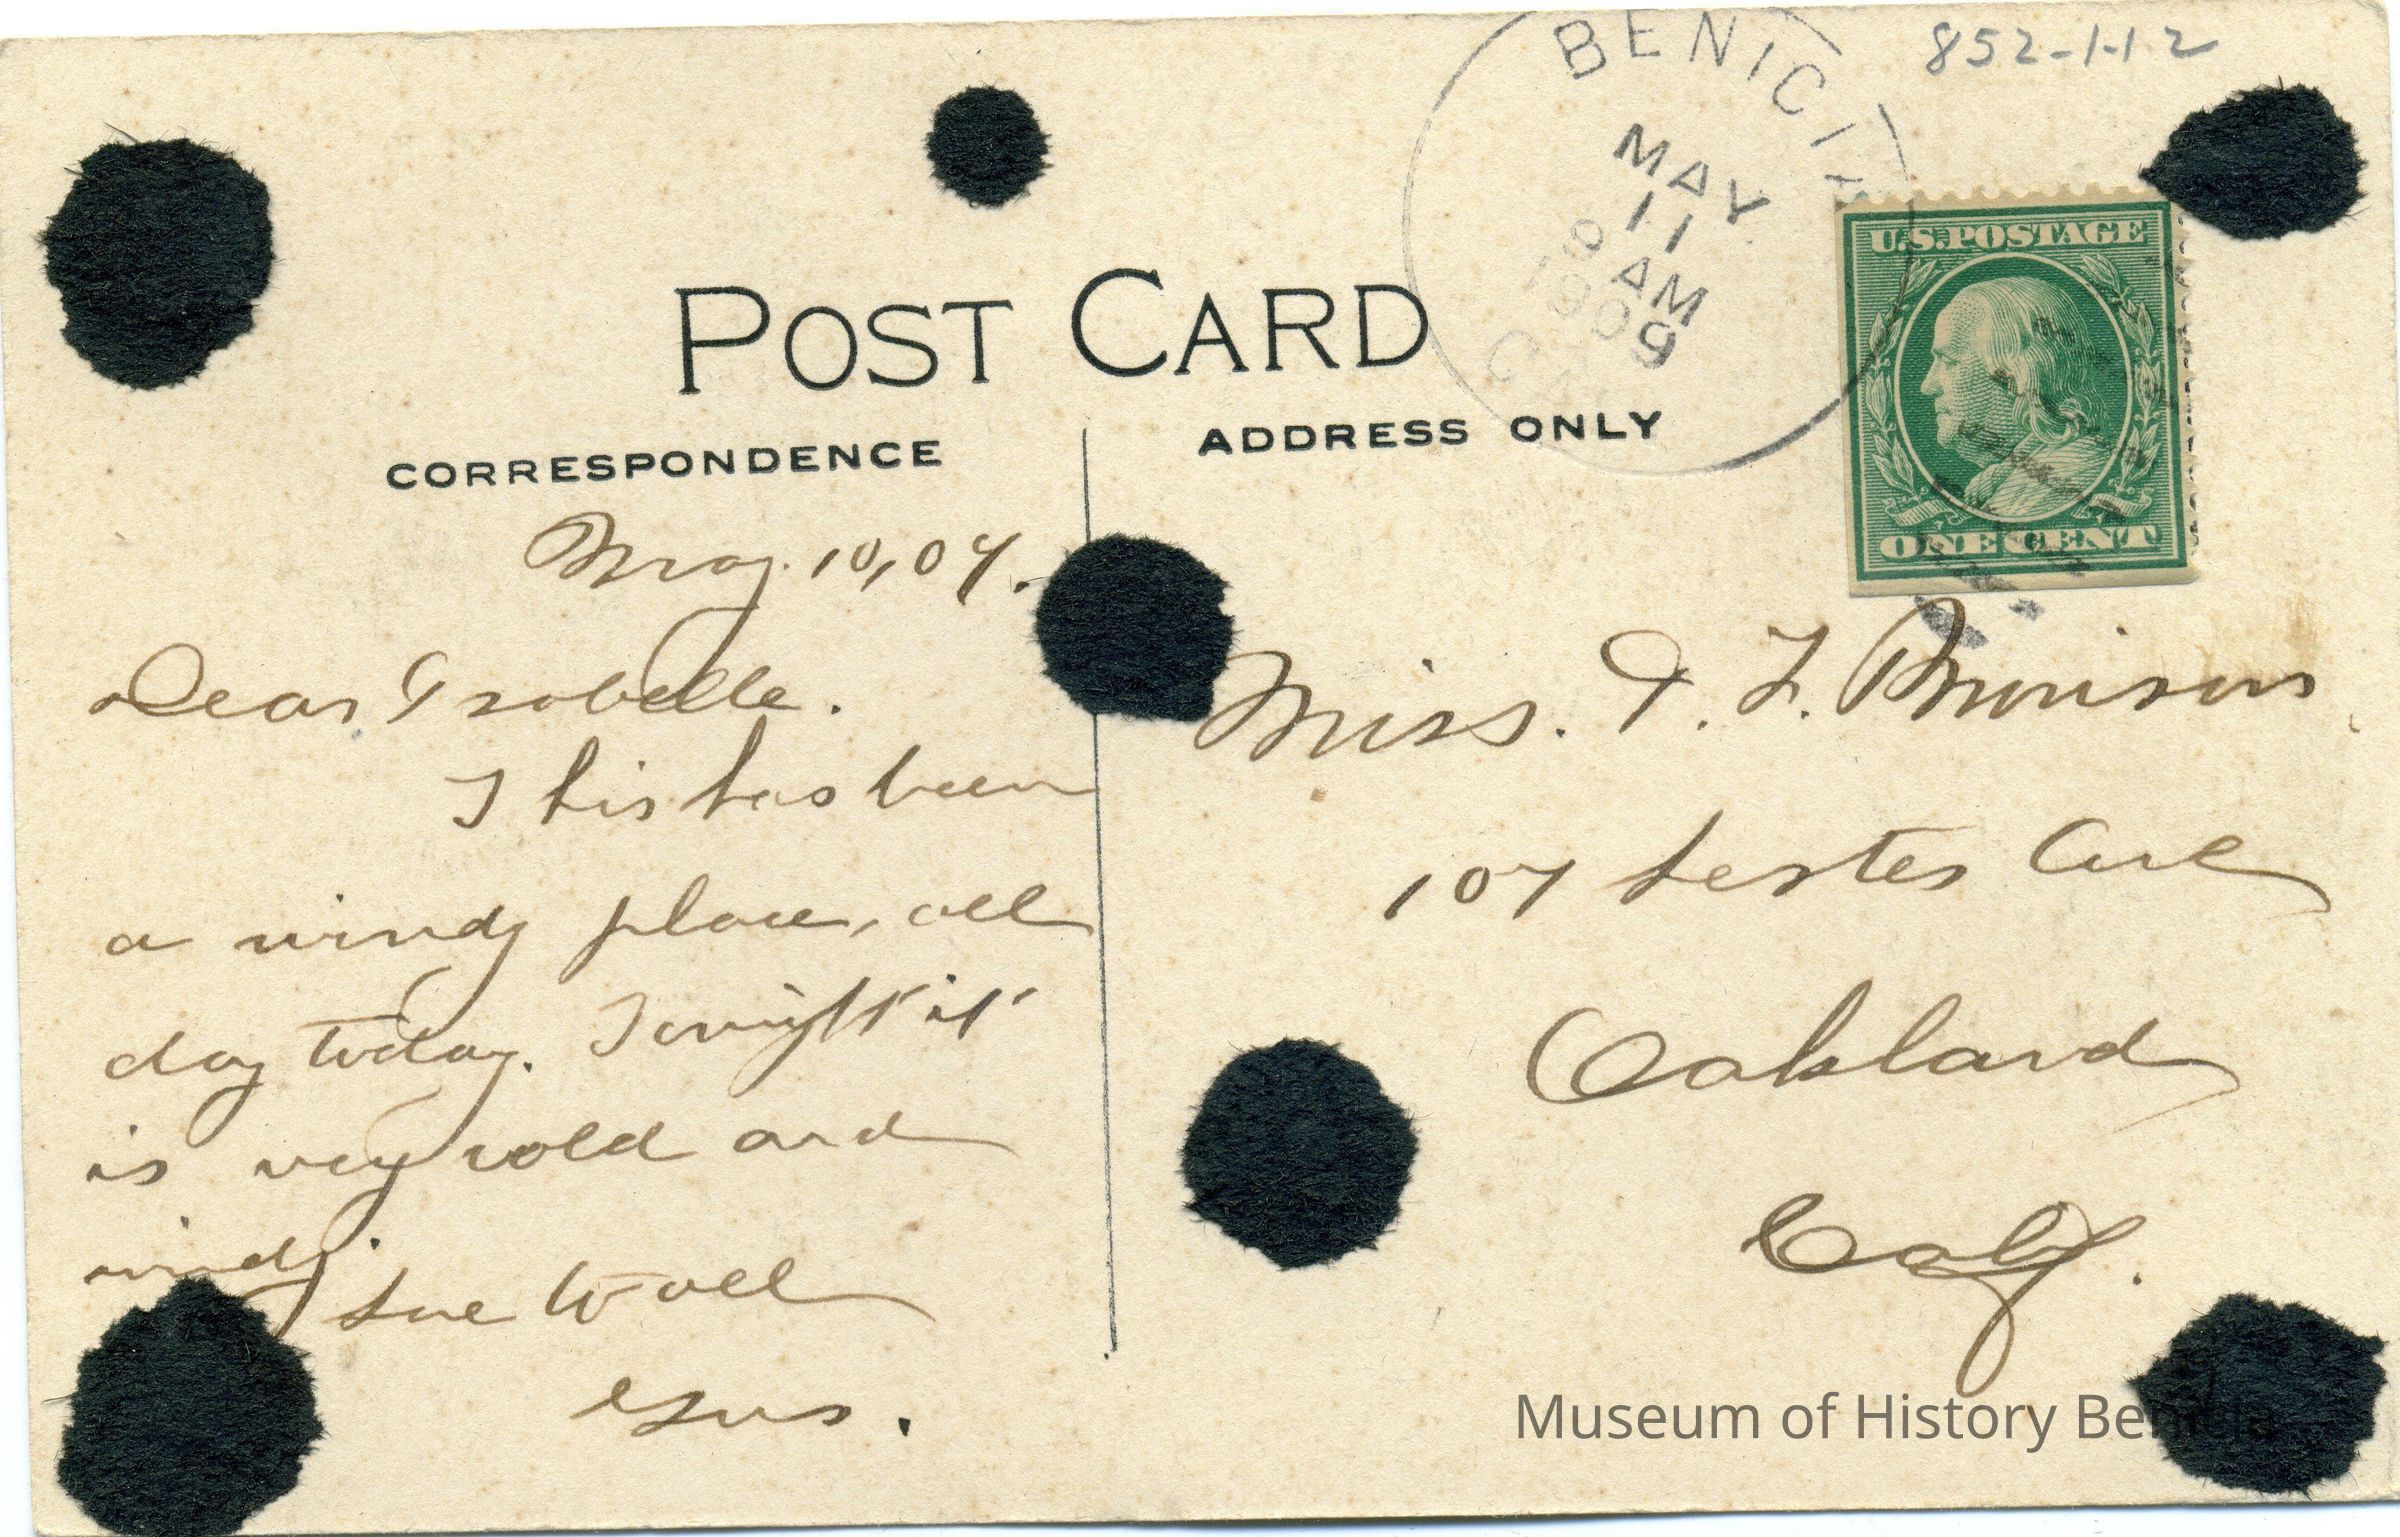 852-1-12
BENICIA
MAY
11
AM
1909
CAL
U.S. POSTAGE
ONE CENT
POST CARD
CORRESPONDENCE
ADDRESS ONLY
May. 10, 09.
Dear Isabelle.
This has been
a windy place, all
day today. Tonight it
is very cold and
windy.
Love to all
Gus.
Miss. I. F.
107 Lester Ave
Oakland
Calf.
Museum of History Benicia